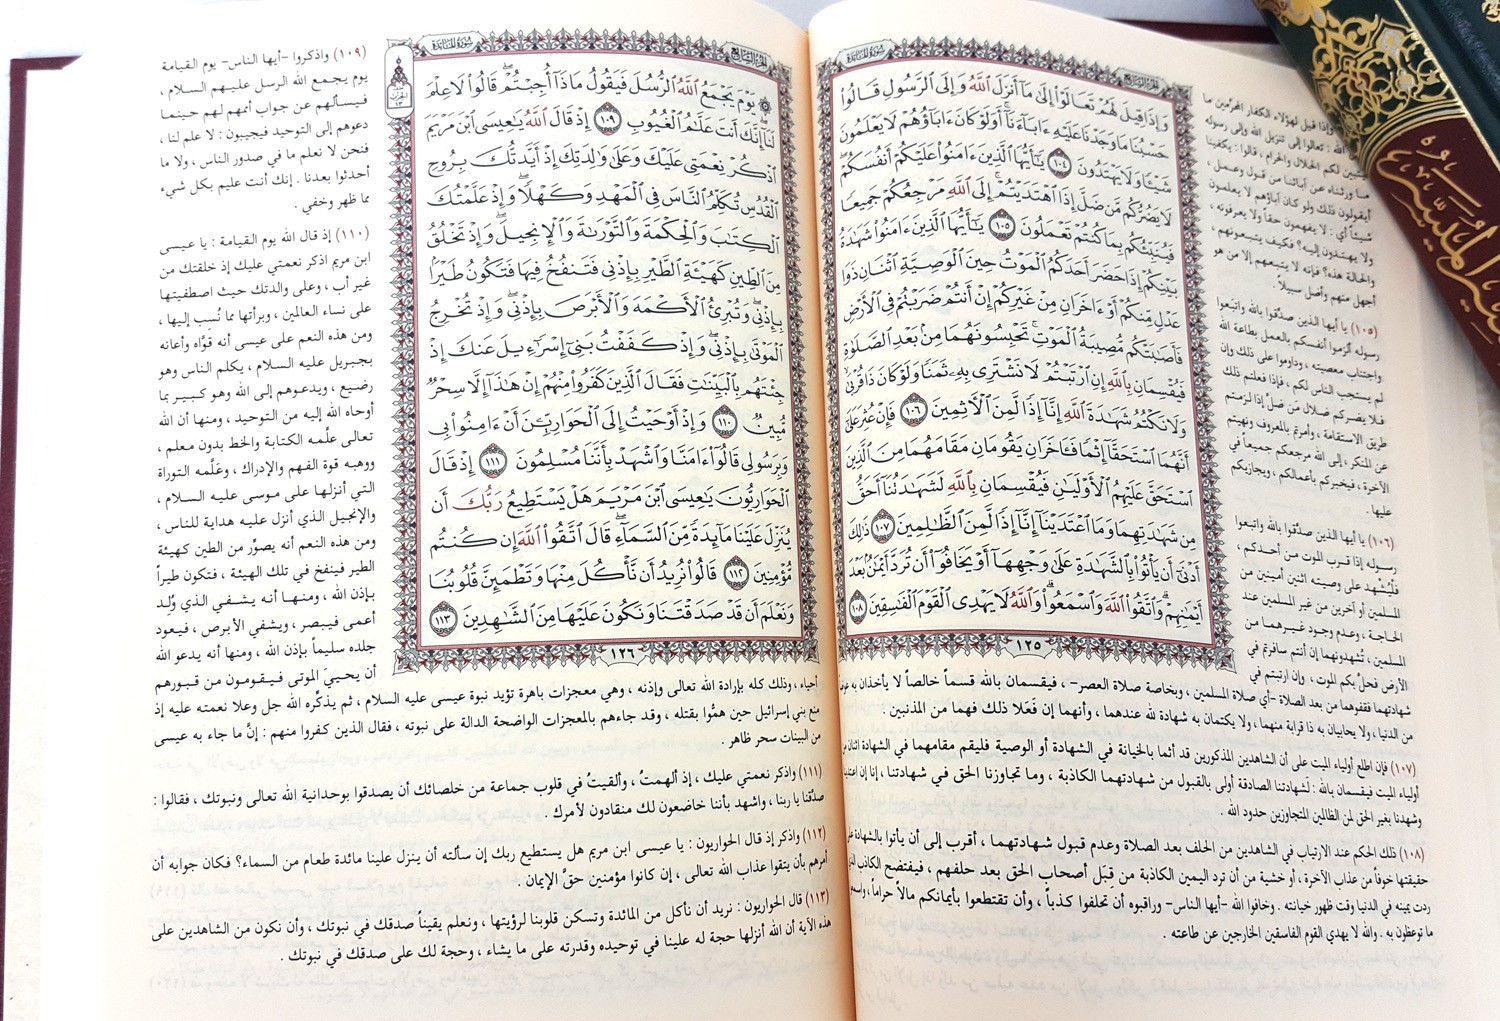 سُورَةُ المَائِدَةِ
الجُزْءُ السَّابِعُ
وَإِذَا قِيلَ لَهُمْ تَعَالَوْا إِلَىٰ مَا أَنزَلَ اللَّهُ وَإِلَى الرَّسُولِ قَالُوا
حَسْبُنَا مَا وَجَدْنَا عَلَيْهِ ءَابَاءَنَا أَوَلَوْ كَانَ ءَابَاؤُهُمْ لَا يَعْلَمُونَ
شَيْئًا وَلَا يَهْتَدُونَ ١٠٤ يَا أَيُّهَا الَّذِينَ ءَامَنُوا عَلَيْكُمْ أَنفُسَكُمْ
لَا يَضُرُّكُم مَّن ضَلَّ إِذَا اهْتَدَيْتُمْ إِلَى اللَّهِ مَرْجِعُكُمْ جَمِيعًا
فَيُنَبِّئُكُم بِمَا كُنتُمْ تَعْمَلُونَ ١٠٥ يَا أَيُّهَا الَّذِينَ ءَامَنُوا شَهَادَةُ
بَيْنِكُمْ إِذَا حَضَرَ أَحَدَكُمُ الْمَوْتُ حِينَ الْوَصِيَّةِ اثْنَانِ ذَوَا
عَدْلٍ مِّنكُمْ أَوْ ءَاخَرَانِ مِنْ غَيْرِكُمْ إِنْ أَنتُمْ ضَرَبْتُمْ فِي الْأَرْضِ
فَأَصَابَتْكُم مُّصِيبَةُ الْمَوْتِ تَحْبِسُونَهُمَا مِن بَعْدِ الصَّلَاةِ
فَيُقْسِمَانِ بِاللَّهِ إِنِ ارْتَبْتُمْ لَا نَشْتَرِي بِهِ ثَمَنًا وَلَوْ كَانَ ذَا قُرْبَىٰ
وَلَا نَكْتُمُ شَهَادَةَ اللَّهِ إِنَّا إِذًا لَّمِنَ الْآثِمِينَ ١٠٦ فَإِنْ عُثِرَ عَلَىٰ
أَنَّهُمَا اسْتَحَقَّا إِثْمًا فَـَٔاخَرَانِ يَقُومَانِ مَقَامَهُمَا مِنَ الَّذِينَ
اسْتَحَقَّ عَلَيْهِمُ الْأَوْلَيَانِ فَيُقْسِمَانِ بِاللَّهِ لَشَهَادَتُنَا أَحَقُّ
مِن شَهَادَتِهِمَا وَمَا اعْتَدَيْنَا إِنَّا إِذًا لَّمِنَ الظَّالِمِينَ ١٠٧ ذَٰلِكَ
أَدْنَىٰ أَن يَأْتُوا بِالشَّهَادَةِ عَلَىٰ وَجْهِهَا أَوْ يَخَافُوا أَن تُرَدَّ أَيْمَانٌ بَعْدَ
أَيْمَانِهِمْ وَاتَّقُوا اللَّهَ وَاسْمَعُوا وَاللَّهُ لَا يَهْدِي الْقَوْمَ الْفَاسِقِينَ ١٠٨
١٢٥
وإذا قيل لهؤلاء الكفار المحرِّمين ما
الله : تعالوا إلى تنزيل الله وإلى رسوله
لكم الحلال والحرام ، قالوا : يكفينا
ما ورثناه عن آبائنا من قول وعمل ،
أيقولون ذلك ولو كان آباؤهم لا يعلمون
شيئاً أي : لا يفهمون حقاً ولا يعرفونه ،
ولا يهتدون إليه؟ فكيف يتبعونهم ،
والحالة هذه؟ فإنه لا يتبعهم إلا من هو
أجهل منهم وأضل سبيلاً.
(١٠٥) يا أيها الذين صدَّقوا بالله واتبعوا
رسوله ألزموا أنفسكم بالعمل بطاعة الله
واجتناب معصيته ، وداوموا على ذلك وإن
لم يستجب الناس لكم ، فإذا فعلتم ذلك
فلا يضركم ضلال مَن ضلَّ إذا لزمتم
طريق الاستقامة ، وأمرتم بالمعروف ونهيتم
عن المنكر ، إلى الله مرجعكم جميعاً في
الآخرة ، فيخبركم بأعمالكم ، ويجازيكم
عليها.
(١٠٦) يا أيها الذين صدَّقوا بالله واتبعوا
رسوله إذا قرب الموت من أحدكم ،
فلْيُشْهِد على وصيته اثنين أمينين من
المسلمين أو آخرين من غير المسلمين عند
الحاجة ، وعدم وجود غيرهما من
المسلمين ، تُشهدونهما إن أنتم سافرتم في
الأرض فحلَّ بكم الموت ، وإن ارتبتم في
شهادتهما فقفوهما من بعد الصلاة -أي صلاة المسلمين ، وبخاصة صلاة العصر- ، فيقسمان بالله قسماً خالصاً لا يأخذان به
من الدنيا ، ولا يحابيان به ذا قرابة منهما ، ولا يكتمان به شهادة لله عندهما ، وأنهما إن فَعَلا ذلك فهما من المذنبين .
(١٠٧) فإن اطلع أولياء الميت على أن الشاهدين المذكورين قد أثما بالخيانة في الشهادة أو الوصية فليقم مقامهما في الشهادة اثنان
أولياء الميت فيقسمان بالله : لشهادتنا الصادقة أولى بالقبول من شهادتهما الكاذبة ، وما تجاوزنا الحق في شهادتنا ، إنا إن
وشهدنا بغير الحق لمن الظالمين المتجاوزين حدود الله .
(١٠٨) ذلك الحكم عند الارتياب في الشاهدين من الحلف بعد الصلاة وعدم قبول شهادتهما ، أقرب إلى أن يأتوا بالشهادة
حقيقتها خوفاً من عذاب الآخرة ، أو خشية من أن ترد اليمين الكاذبة من قِبَل أصحاب الحق بعد حلفهم ، فيفتضح الكاذب
ردت يمينه في الدنيا وقت ظهور خيانته . وخافوا الله -أيها الناس- وراقبوه أن تحلفوا كذباً ، وأن تقتطعوا بأيمانكم مالاً حراماً ،
ما توعظون به . والله لا يهدي القوم الفاسقين الخارجين عن طاعته .
الجُزْءُ السَّابِعُ
سُورَةُ المَائِدَةِ
يَوْمَ يَجْمَعُ اللَّهُ الرُّسُلَ فَيَقُولُ مَاذَا أُجِبْتُمْ قَالُوا لَا عِلْمَ
لَنَا إِنَّكَ أَنتَ عَلَّامُ الْغُيُوبِ ١٠٩ إِذْ قَالَ اللَّهُ يَا عِيسَى ابْنَ مَرْيَمَ
اذْكُرْ نِعْمَتِي عَلَيْكَ وَعَلَىٰ وَالِدَتِكَ إِذْ أَيَّدتُّكَ بِرُوحِ
الْقُدُسِ تُكَلِّمُ النَّاسَ فِي الْمَهْدِ وَكَهْلًا وَإِذْ عَلَّمْتُكَ
الْكِتَابَ وَالْحِكْمَةَ وَالتَّوْرَاةَ وَالْإِنجِيلَ وَإِذْ تَخْلُقُ
مِنَ الطِّينِ كَهَيْئَةِ الطَّيْرِ بِإِذْنِي فَتَنفُخُ فِيهَا فَتَكُونُ طَيْرًا
بِإِذْنِي وَتُبْرِئُ الْأَكْمَهَ وَالْأَبْرَصَ بِإِذْنِي وَإِذْ تُخْرِجُ
الْمَوْتَىٰ بِإِذْنِي وَإِذْ كَفَفْتُ بَنِي إِسْرَائِيلَ عَنكَ إِذْ
جِئْتَهُم بِالْبَيِّنَاتِ فَقَالَ الَّذِينَ كَفَرُوا مِنْهُمْ إِنْ هَٰذَا إِلَّا سِحْرٌ
مُّبِينٌ ١١٠ وَإِذْ أَوْحَيْتُ إِلَى الْحَوَارِيِّينَ أَنْ ءَامِنُوا بِي
وَبِرَسُولِي قَالُوا ءَامَنَّا وَاشْهَدْ بِأَنَّنَا مُسْلِمُونَ ١١١ إِذْ قَالَ
الْحَوَارِيُّونَ يَا عِيسَى ابْنَ مَرْيَمَ هَلْ يَسْتَطِيعُ رَبُّكَ أَن
يُنَزِّلَ عَلَيْنَا مَائِدَةً مِّنَ السَّمَاءِ قَالَ اتَّقُوا اللَّهَ إِن كُنتُم
مُّؤْمِنِينَ ١١٢ قَالُوا نُرِيدُ أَن نَّأْكُلَ مِنْهَا وَتَطْمَئِنَّ قُلُوبُنَا
وَنَعْلَمَ أَن قَدْ صَدَقْتَنَا وَنَكُونَ عَلَيْهَا مِنَ الشَّاهِدِينَ ١١٣
١٢٦
(١٠٩) واذكروا -أيها الناس- يوم القيامة
يوم يجمع الله الرسل عليهم السلام ،
فيسألهم عن جواب أممهم لهم حينما
دعوهم إلى التوحيد فيجيبون : لا علم لنا ،
فنحن لا نعلم ما في صدور الناس ، ولا ما
أحدثوا بعدنا . إنك أنت عليم بكل شيء
مما ظهر وخفي .
(١١٠) إذ قال الله يوم القيامة : يا عيسى
ابن مريم اذكر نعمتي عليك إذ خلقتك من
غير أب ، وعلى والدتك حيث اصطفيتها
على نساء العالمين ، وبرأتها مما نُسِب إليها ،
ومن هذه النعم على عيسى أنه قوَّاه وأعانه
بجبريل عليه السلام ، يكلم الناس وهو
رضيع ، ويدعوهم إلى الله وهو كبير بما
أوحاه الله إليه من التوحيد ، ومنها أن الله
تعالى علَّمه الكتابة والخط بدون معلم ،
ووهبه قوة الفهم والإدراك ، وعَلَّمه التوراة
التي أنزلها على موسى عليه السلام ،
والإنجيل الذي أنزل عليه هداية للناس ،
ومن هذه النعم أنه يصوِّر من الطين كهيئة
الطير فينفخ في تلك الهيئة ، فتكون طيراً
بإذن الله ، ومنها أنه يشفي الذي وُلِد
أعمى فيبصر ، ويشفي الأبرص ، فيعود
جلده سليماً بإذن الله ، ومنها أنه يدعو الله
أن يحييَ الموتى فيقومون من قبورهم
أحياء ، وذلك كله بإرادة الله تعالى وإذنه ، وهي معجزات باهرة تؤيد نبوة عيسى عليه السلام ، ثم يذكِّره الله جل وعلا نعمته عليه إذ
منع بني إسرائيل حين همُّوا بقتله ، وقد جاءهم بالمعجزات الواضحة الدالة على نبوته ، فقال الذين كفروا منهم : إنَّ ما جاء به عيسى
من البينات سحر ظاهر .
(١١١) واذكر نعمتي عليك ، إذ ألهمتُ ، وألقيتُ في قلوب جماعة من خلصائك أن يصدقوا بوحدانية الله تعالى ونبوتك ، فقالوا :
صدَّقنا يا ربنا ، واشهد بأننا خاضعون لك منقادون لأمرك .
(١١٢) واذكر إذ قال الحواريون : يا عيسى ابن مريم هل يستطيع ربك إن سألته أن ينزل علينا مائدة طعام من السماء؟ فكان جوابه أن
أمرهم بأن يتقوا عذاب الله تعالى ، إن كانوا مؤمنين حقَّ الإيمان .
(١١٣) قال الحواريون : نريد أن نأكل من المائدة وتسكن قلوبنا لرؤيتها ، ونعلم يقيناً صدقك في نبوتك ، وأن نكون من الشاهدين على
هذه الآية أن الله أنزلها حجة له علينا في توحيده وقدرته على ما يشاء ، وحجة لك على صدقك في نبوتك .